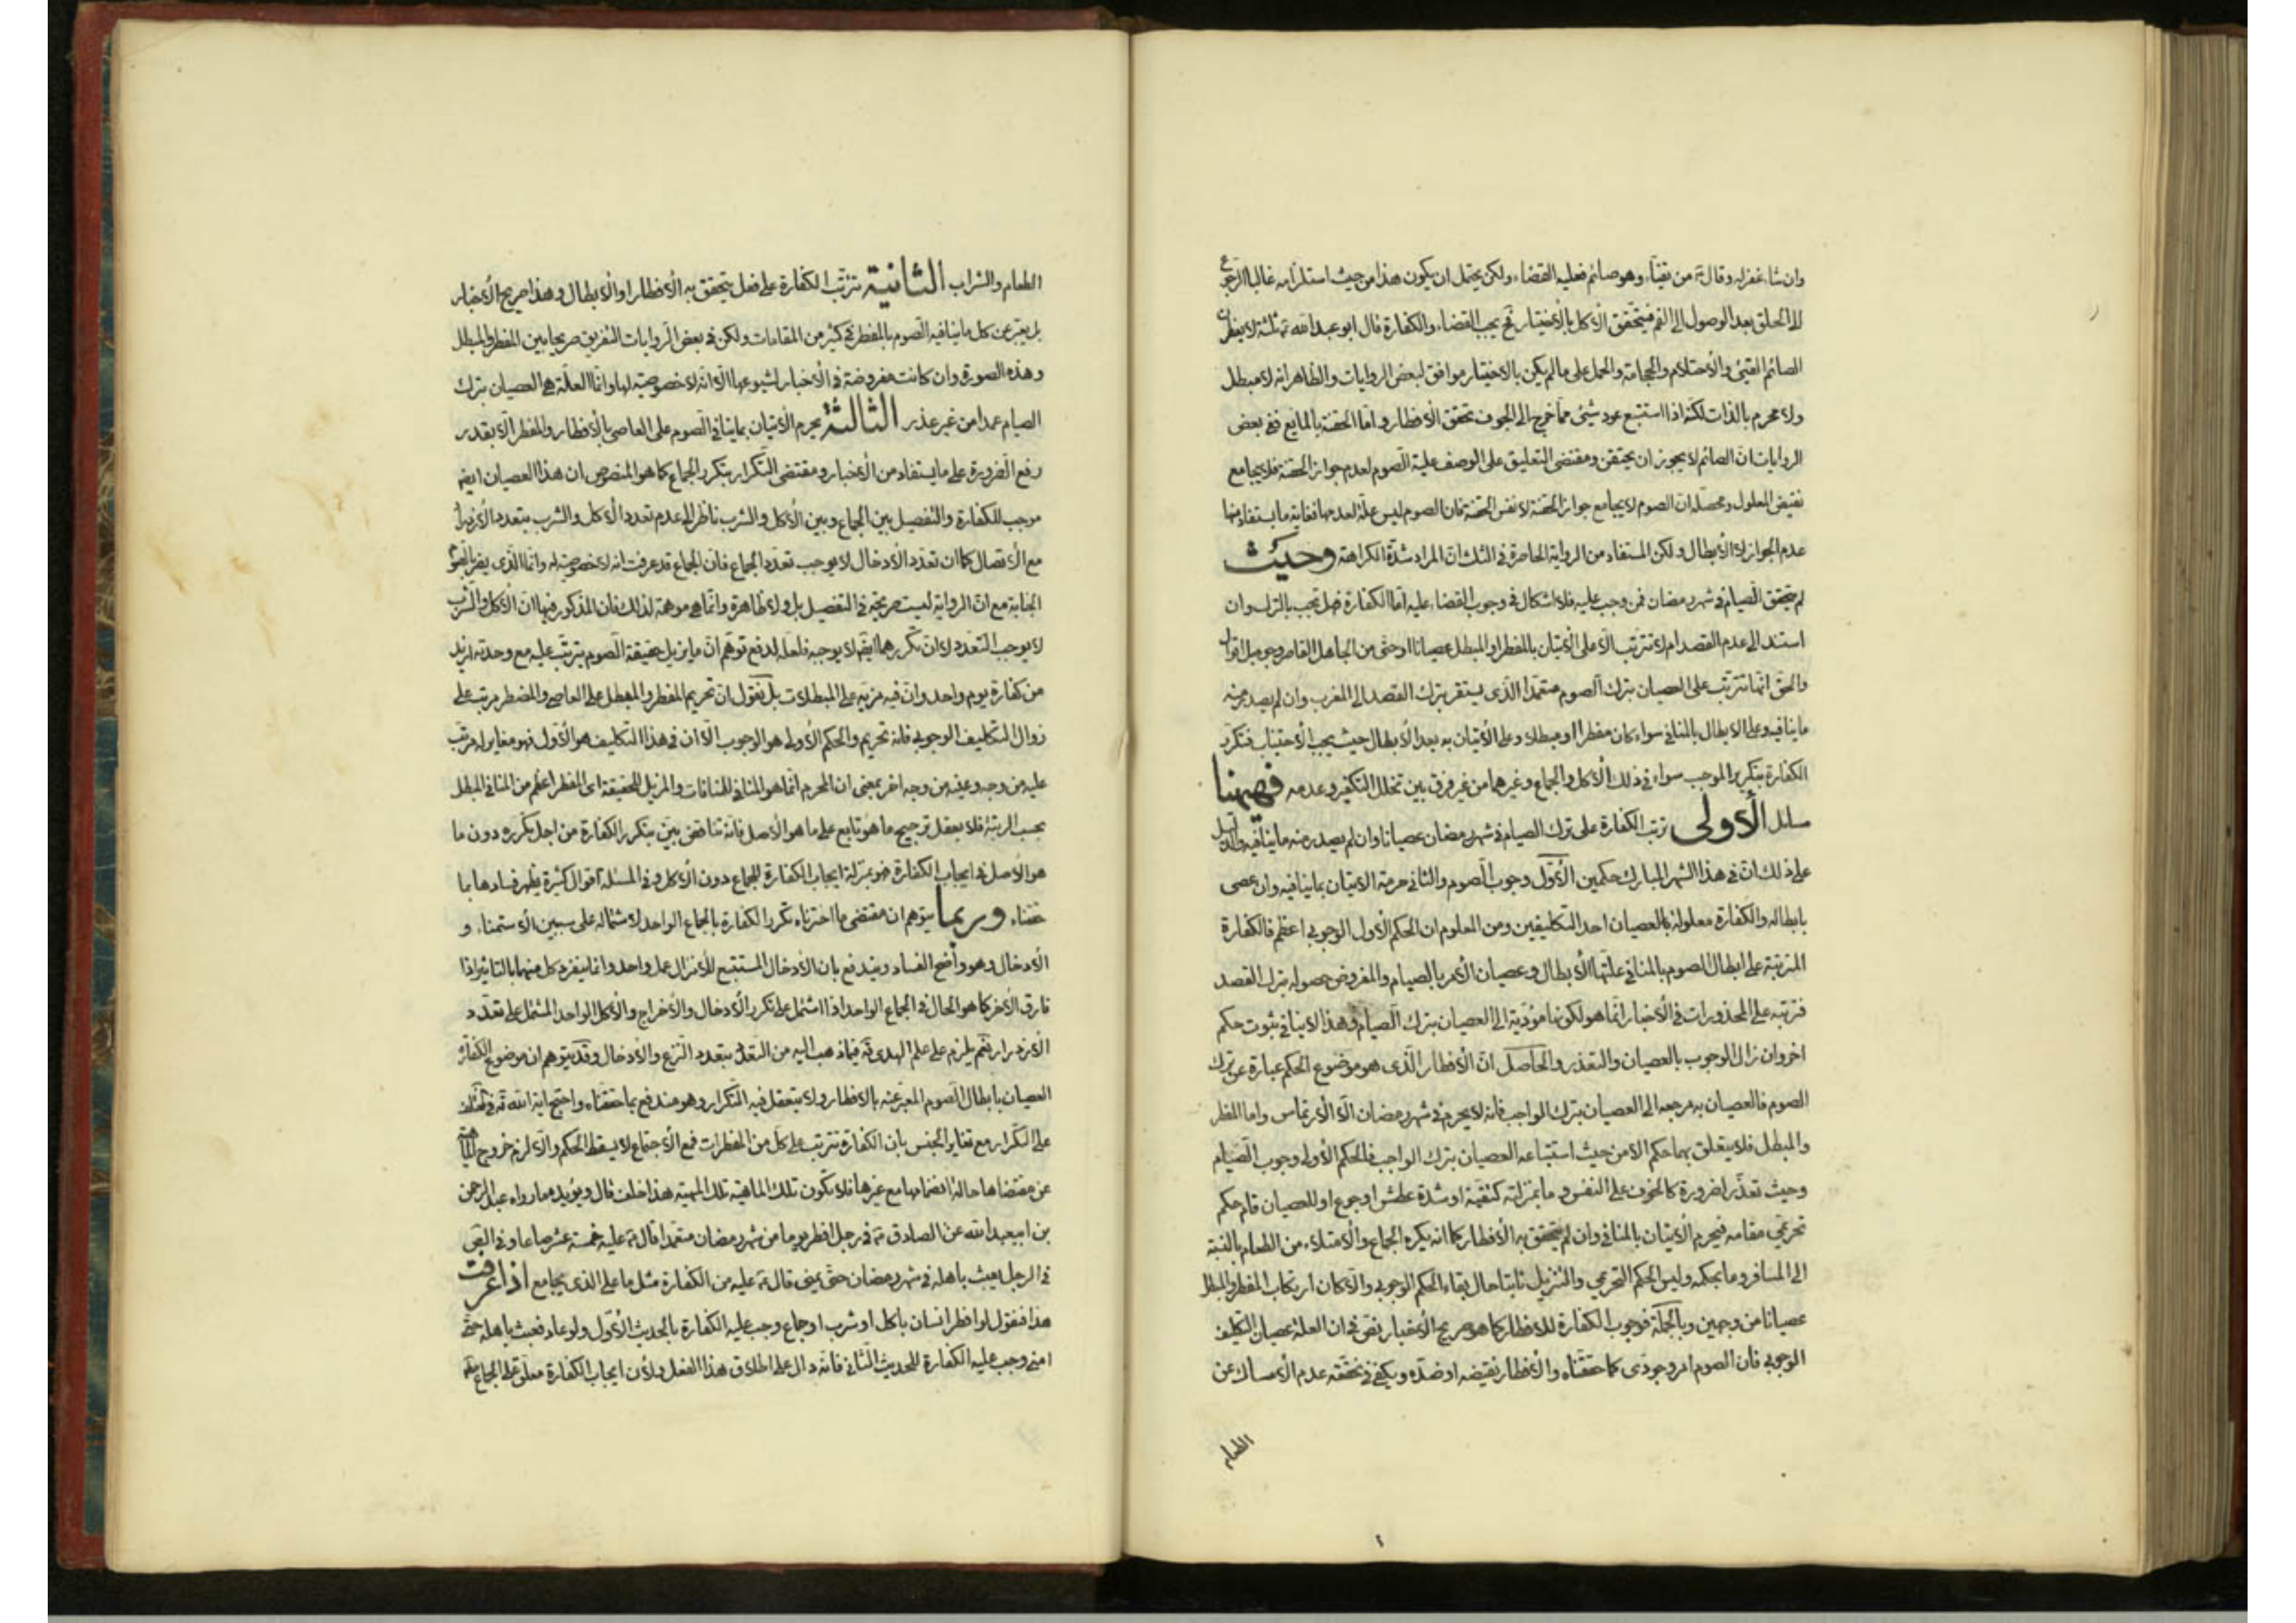 وان شاء غفر له وقال ع من تقيأ وهو صائم فعليه القضاء ولكن يحتمل ان يكون هذا من حيث استلزامه غالبا الرجوع
الى الحلق بعد الوصول الى الفم فيتحقق الاكل بالاختيار فح يجب القضاء والكفارة قال ابو عبد الله ع ثلثة لا يفطرن
الصائم القيئ والاحتلام والحجامة والحمل على ما لم يكن بالاختيار موافق لبعض الروايات والظاهر انه لا مبطل
ولا محرم بالذات لكنه اذا استتبع عود شئ مما خرج الى الجوف تحقق الافطار واما الحقنة بالمايع ففي بعض
الروايات ان الصائم لا يجوز ان يحتقن ومقتضى التعليق على الوصف علية الصوم لعدم جواز الحقنة فلا يجامع
نقيض المعلول ومحصله ان الصوم لا يجامع جواز الحقنة لا نفس الحقنة فان الصوم ليس علة لعدمها فغاية ما يستفاد منها
عدم الجواز لا الابطال ولكن المستفاد من الرواية الحاصرة في الثلث ان المراد شدة الكراهة وحيث
لم يتحقق الصيام في شهر رمضان فمن وجب عليه فلا اشكال في وجوب القضاء عليه اما الكفارة فهل تجب بالترك وان
استند الى عدم القصد ام لا تترتب الا على الاتيان بالمفطر او المبطل عصيانا او حتى من الجاهل القاصر وجوه بل اقوال
والحق انما تترتب على العصيان بترك الصوم متعمدا الذى يستقر بترك القصد الى المغرب وان لم يصدر منه
ما ينافيه وعلى الابطال بالمنافي سواء كان مفطرا او مبطلا وعلى الاتيان به بعد الابطال حيث يجب الاجتناب فتكرر
الكفارة بتكرر الموجب سواء في ذلك الاكل والجماع وغيرهما من غير فرق بين تخلل التكفير وعدمه فهيهنا
مسائل الأولى ترتب الكفارة على ترك الصيام في شهر رمضان عصيانا وان لم يصدر منه ما ينافيه والدليل
على ذلك ان في هذا الشهر المبارك حكمين الاول وجوب الصوم والثاني حرمة الاتيان بما ينافيه وان عصى
بابطاله والكفارة معلولة بالعصيان احد التكليفين ومن المعلوم ان الحكم الاول الوجوبي اعظم فالكفارة
المترتبة على ابطال الصوم بالمنافي علتها الابطال وعصيان الامر بالصيام والمفروض حصوله بترك القصد
فترتبه على المحذورات في الاخبار انما هو لكونها مؤدية الى العصيان بترك الصيام وهذا لا ينافي ثبوت حكم
اخر وان زال الوجوب بالعصيان والتعذر والحاصل ان الافطار الذى هو موضوع الحكم عبارة عن ترك
الصوم فالعصيان به مرجعه الى العصيان بترك الواجب فانه لا يحرم في شهر رمضان الا الارتماس واما المفطر
والمبطل فلا يتعلق بهما حكم الا من حيث استتباعه العصيان بترك الواجب فالحكم الاولى وجوب الصيام
وحيث تعذر لضرورة كالخوف على النفس وما بمنزلته كتقية او شدة عطش او جوع او للعصيان قام حكم
تحريمي مقامه فيحرم الاتيان بالمنافي وان لم يتحقق به الافطار كما انه يكره الجماع والامتلاء من الطعام بالنسبة
الى المسافر وما بحكمه وليس الحكم التحريمي والتنزيل ثابتا حال بقاء الحكم الوجوبي والا كان ارتكاب المفطر والمبطل
عصيانا من وجهين وبالجملة فوجوب الكفارة للافطار كما هو صريح الاخبار نص في ان العلة عصيان التكليف
الوجوبي فان الصوم امر وجودى كما حققناه والافطار نقيضه او ضده ويكفي في تحققه عدم الامساك عن
الطعام
الطعام والشراب الثانية تترتب الكفارة على فعل يتحقق به الافطار او الابطال وهذا صريح الاخبار
بل يعبر عن كل ما ينافيه الصوم بالمفطر في كثير من المقامات ولكن في بعض الروايات التفريق صريحا بين المفطر والمبطل
وهذه الصورة وان كانت مفروضة في الاخبار لشيوعها الا انه لا خصوصية لها وانما العلة هي العصيان بترك
الصيام عمدا من غير عذر الثالثة يحرم الاتيان بما ينافي الصوم على العاصى بالافطار والمفطر الا بقدر
رفع الضرورة على ما يستفاد من الاخبار ومقتضى التكرار بتكرر الجماع كما هو المنصوص ان هذا العصيان ايضا
موجب للكفارة والتفصيل بين الجماع وبين الاكل والشرب ناظر الى عدم تعدد الاكل والشرب بتعدد الازدراد
مع الاتصال كما ان تعدد الادخال لا يوجب تعدد الجماع فان الجماع قد عرفت انه لا خصوصية له وانما الذى يضر بالصوم
الجنابة مع ان الرواية ليست صريحة في التفصيل بل ولا ظاهرة وانما هي موهمة لذلك فان المذكور فيها ان الاكل والشرب
لا يوجب التعدد لا ان تكررهما ايضا لا يوجبه فلعله لدفع توهم ان ما يزيل حقيقة الصوم يترتب عليه مع وحدته ازيد
من كفارة يوم واحد وان فيه مزية على المبطلات بل نقول ان تحريم المفطر والمبطل على العاصي والمضطر مرتب على
زوال التكليف الوجوبي فانه تحريم والحكم الاولى هو الوجوب الا ان في هذا التكليف هو الاول فهو مغاير له مرتب
عليه من وجه وعينه من وجه اخر بمعنى ان المحرم انما هو المنافي للمنافات والمزيل للحقيقة اى المفطر اعم من المنافي المبطل
بحسب الرتبة فلا يعقل ترجيح ما هو تابع على ما هو الاصل فانه تناقض بين بتكرر الكفارة من اجل تكرره دون ما
هو الاصل في ايجاب الكفارة فهو بمنزلة ايجاب الكفارة للجماع دون الاكل وفي المسئلة اقوال كثيرة يظهر فسادها بما
حققناه وربما يتوهم ان مقتضى ما اخترناه تكرر الكفارة بالجماع الواحد لاشتماله على سببين الاستمناء و
الادخال وهو واضح الفساد ويندفع بان الادخال المستتبع للانزال عمل واحد وانما ينفرد كل منهما بالتاثير اذا
فارق الاخر كما هو الحال في الجماع الواحد اذا اشتمل على تكرر الادخال والاخراج والاكل الواحد المشتمل على تعدد
الازدراد نعم يلزم على علم الهدى قه فيما ذهب اليه من التعدد بتعدد النزع والادخال وقد يتوهم ان موضوع الكفارة
العصيان بابطال الصوم المعبر عنه بالافطار ولا يتعقل فيه التكرار وهو مندفع بما حققناه واحتج اية الله قه في المختلف
على التكرار مع تغاير الجنس بان الكفارة تترتب على كل من المفطرات فمع الاجتماع لا يسقط الحكم والا لزم خروج الماهية
عن مقتضاها حالة انضمامها مع غيرها فلا تكون تلك الماهية تلك الماهية هذا خلف قال ويؤيده ما رواه عبد الرحمن
بن ابيعبد الله عن الصادق ع في رجل افطر يوما من شهر رمضان متعمدا قال ع عليه خمسة عشر صاعا وفي
في الرجل يعبث باهله في شهر رمضان حتى يمنى قال ع عليه من الكفارة مثل ما على الذى يجامع اذا عرفت
هذا فنقول لو افطر انسان باكل او شرب او جماع وجب عليه الكفارة بالحديث الاول ولو عاود فعبث باهله حتى
امنى وجب عليه الكفارة للحديث الثاني فانه دال على اطلاق هذا الفعل ولان ايجاب الكفارة معلق على الجماع